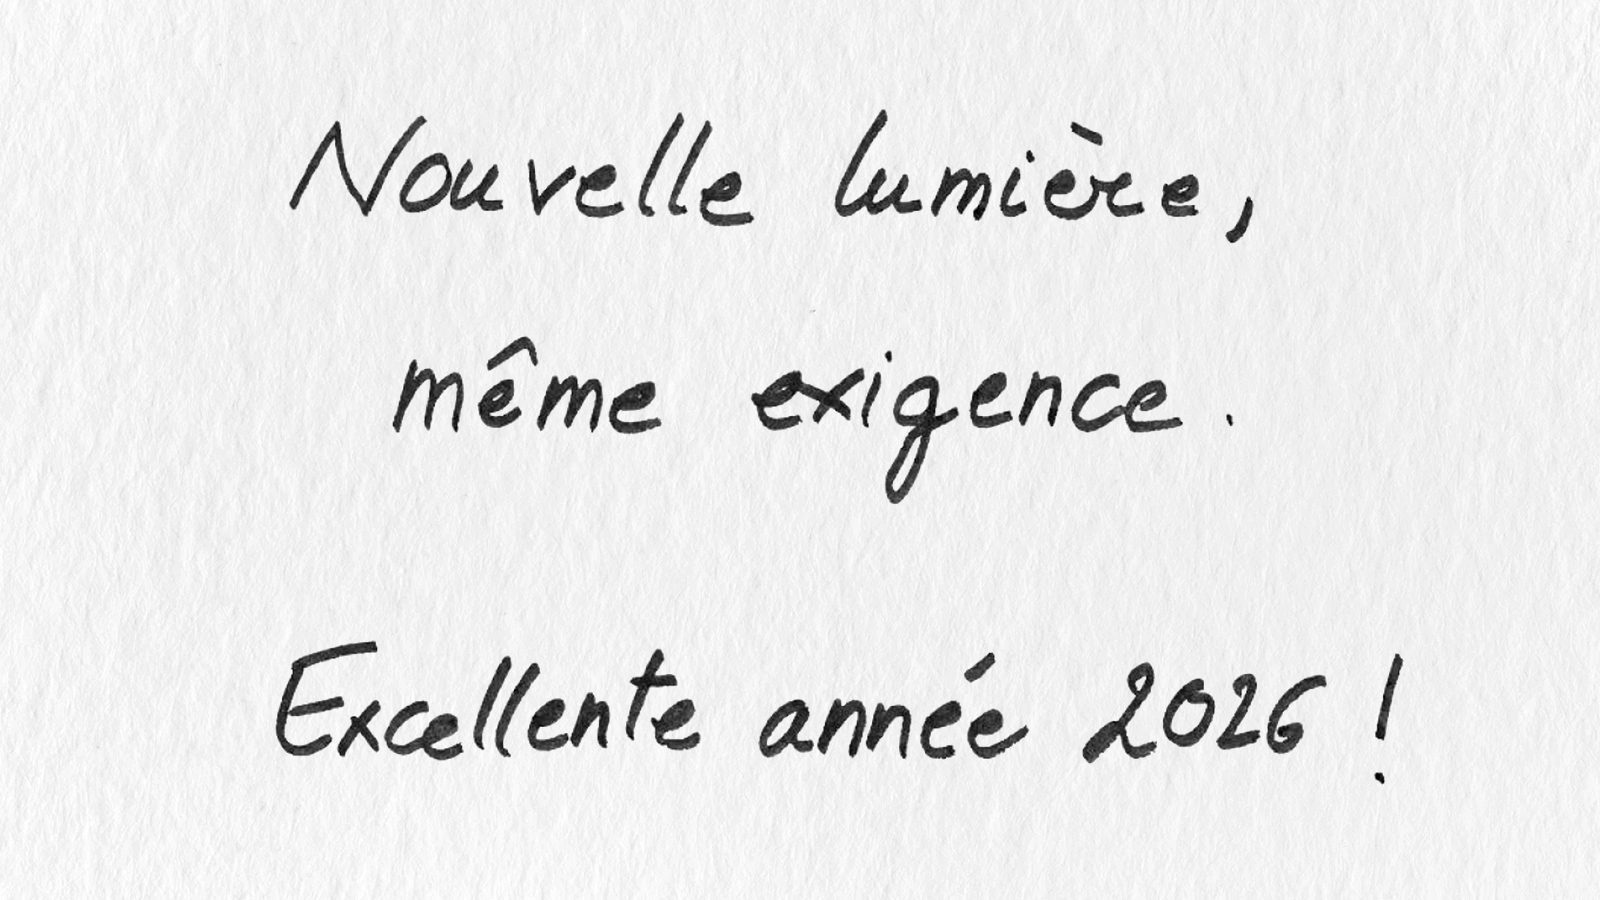 Nouvelle lumière,
même exigence.
Excellente année 2026 !